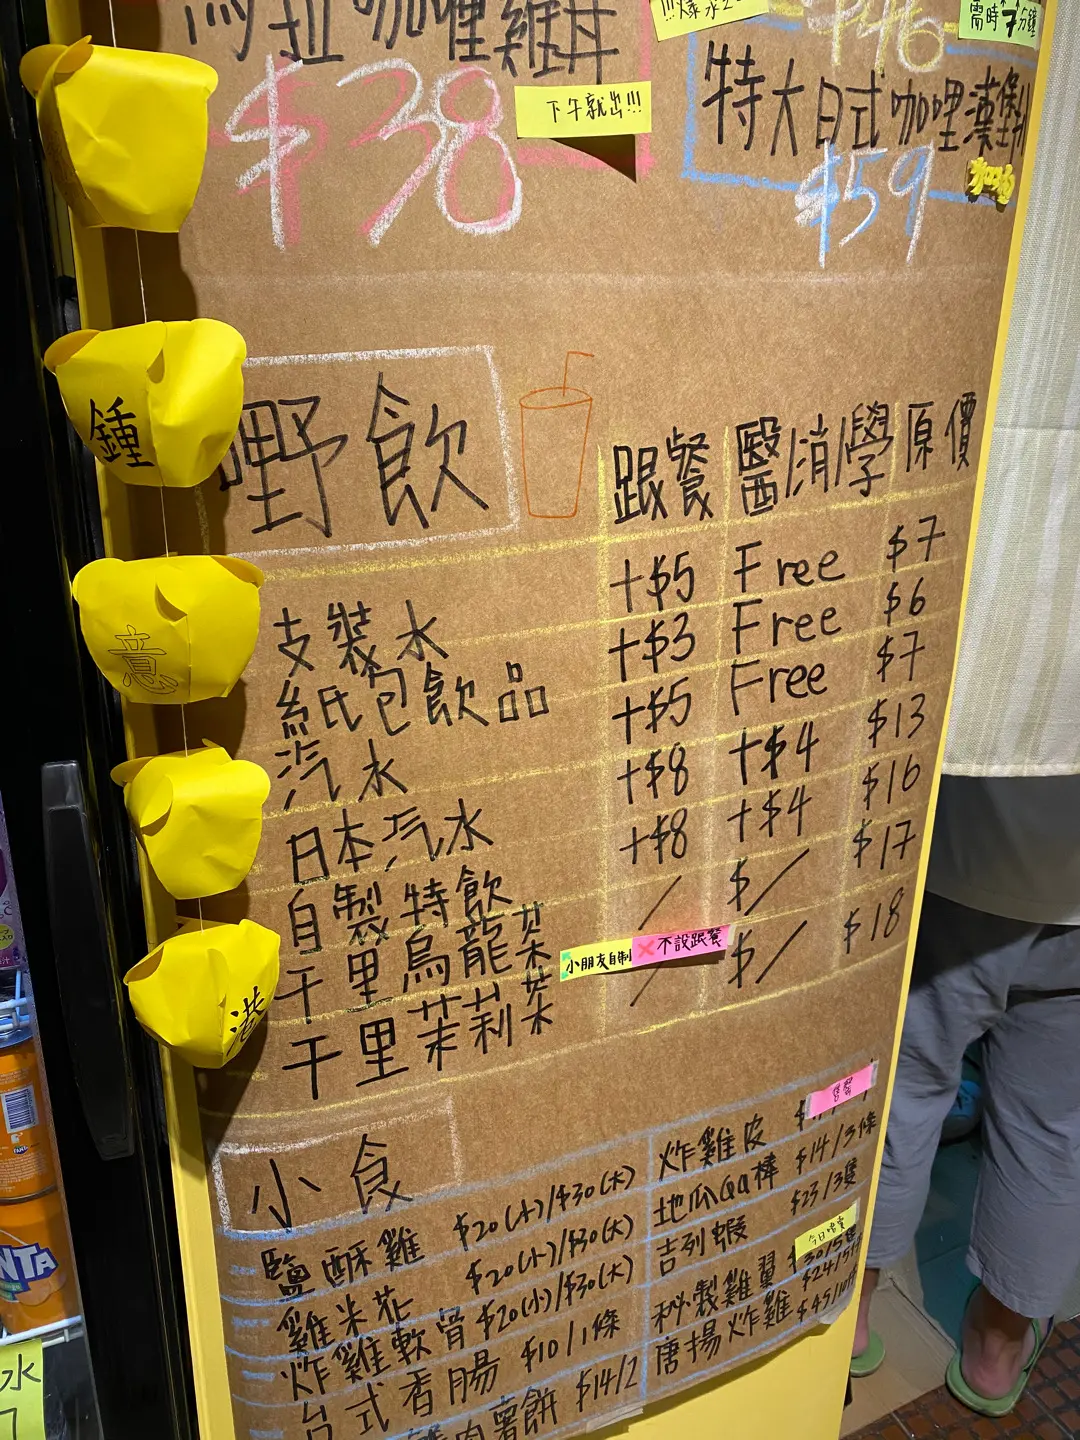 咖哩雞丼
$38
下午就出!!!
$46
需時7分鐘
特大日式咖哩漢堡
$59
加油
鍾
意
港
嘢飲
跟餐 醫/消/學 原價
支裝水 +$5 Free $7
紙包飲品 +$3 Free $6
汽水 +$5 Free $7
日本汽水 +$8 +$4 $13
自製特飲 +$8 +$4 $16
千里烏龍茶 / $/ $17
小朋友自制 ×不設跟餐
千里茉莉茶 / $/ $18
小食
鹽酥雞 $20(小)/$30(大)
雞米花 $20(小)/$30(大)
炸雞軟骨 $20(小)/$30(大)
台式香腸 $10/1條
肉薯餅 $14/2
炸雞皮
售罄
地瓜QQ棒 $14/3條
吉列蝦 $23/3隻
秘製雞翼
唐揚炸雞
FANTA
NTA
水